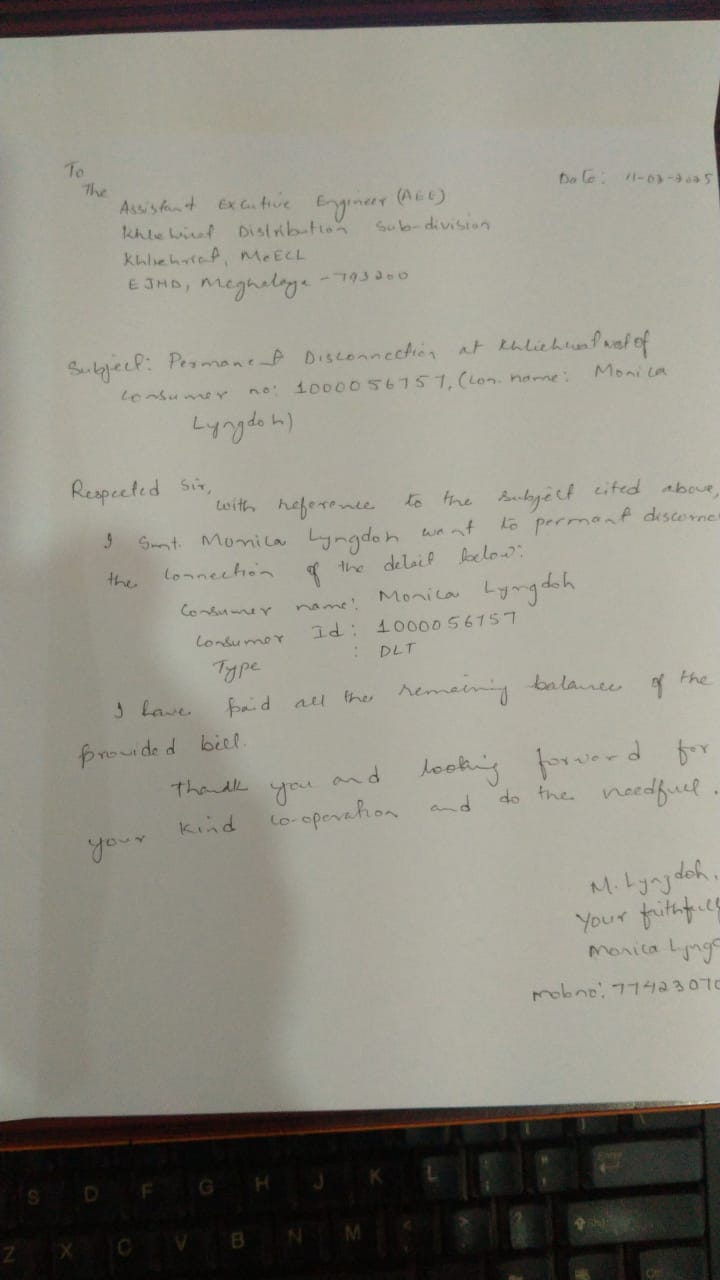 To
The
Date: 11-03-2025
Assistant Excutive Engineer (AEE)
Khliehriat Distribution Sub-division
Khliehriat, MeECL
EJHD, Meghalaya - 793200
Subject: Permanent Disconnection at Khliehriat west of
Consumer no: 1000056757, (Con. name: Monica
Lyngdoh)
Respected Sir,
with reference to the subject cited above,
I Smt. Monica Lyngdoh want to permant disconne
the connection of the detail below:
Consumer name: Monica Lyngdoh
Consumer Id: 1000056757
Type : DLT
I have paid all the remaining balance of the
provided bill.
Thank you and looking forward for
your kind co-operation and do the needfull.
M. Lyngdoh.
Your faithfull
Monica Lyngd
mobno: 77423070
S D F G H J K L
Enter
Z X C V B N M < > ?
Shift